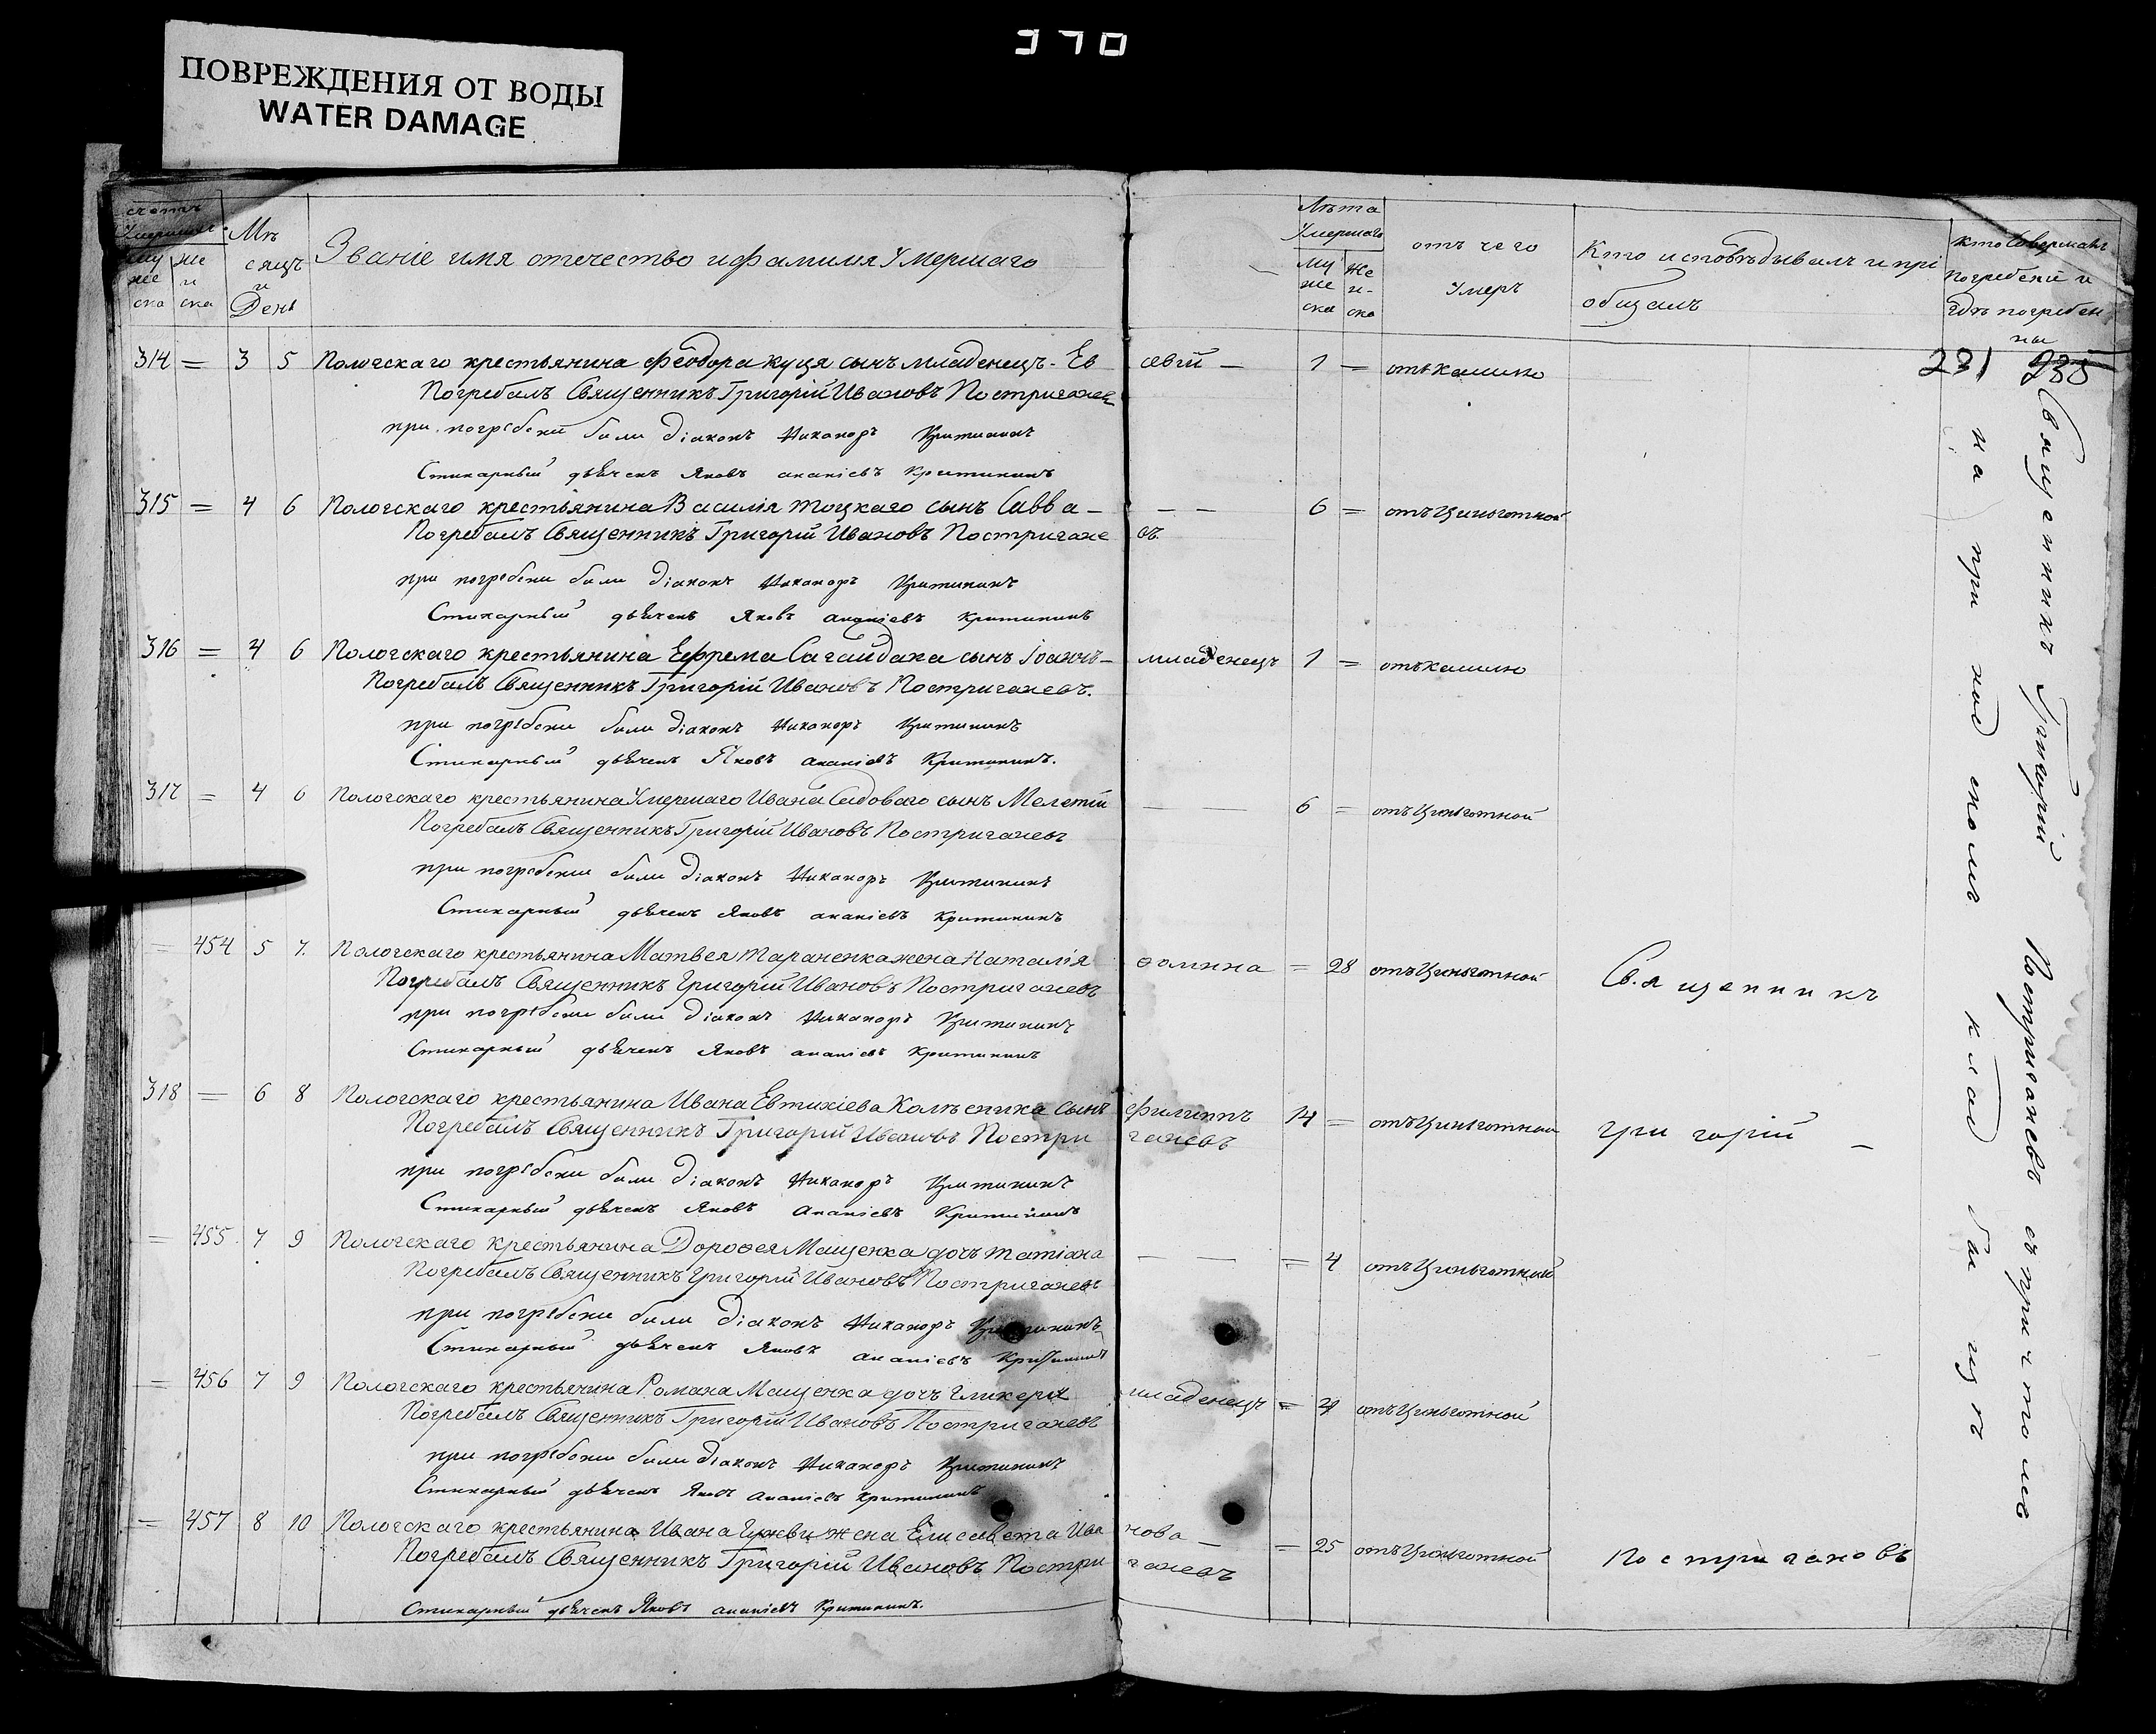 370
ПОВРЕЖДЕНИЯ ОТ ВОДЫ
WATER DAMAGE
счетъ Умершихъ
му же ска
же н ска
Мѣ сяцъ и День
Званіе имя отечество и фамилія Умершаго
Лѣта Умершаго
му же ска
же н- ска
отъ чего Умеръ
Кто исповѣдывалъ и прі общалъ
кто Совершалъ Погребеніе и гдѣ погребен ны
231 235
314 = 3 5 Пологскаго крестьянина Феодора Куця сынъ младенецъ - Ев севій — 1 = отъ кашлю
Погребалъ Священникъ Григорій Ивановъ Постригане
при погребени были Діаконъ Никаноръ Критининъ
Стихарный дьячекъ Яковъ ананіевъ Критининъ
315 = 4 6 Пологскаго крестьянина Василія Тоцкаго сынъ Савва — — — 6 = отъ Цынготной
Погребалъ Священникъ Григорій Ивановъ Постригане въ
при погребени были Діаконъ Никаноръ Критининъ
Стихарный дьячекъ Яковъ ананіевъ Критининъ
316 = 4 6 Пологскаго крестьянина Ефрема Сагайдака сынъ Іоаннъ — младенецъ 1 = отъ кашлю
Погребалъ Священникъ Григорій Ивановъ Постриганевъ.
при погребени были Діаконъ Никаноръ Критининъ
Стихарный дьячекъ Яковъ ананіевъ Критининъ.
317 = 4 6 Пологскаго крестьянина Умершаго Ивана Садоваго сынъ Мелетій — — 6 = отъ Цынготной
Погребалъ Священникъ Григорій Ивановъ Постриганевъ
при погребении были Діаконъ Никаноръ Критининъ
Стихарный дьячекъ Яковъ ананіевъ Критининъ
= 454 5 7. Пологскаго крестьянина Матвея Тараненка жена Наталія Фомина = 28 отъ Цынготной Священникъ
Погребалъ Священникъ Григорій Ивановъ Постриганевъ
при погребени были Діаконъ Никаноръ Критининъ
Стихарный дьячекъ Яковъ ананіевъ Критининъ
318 = 6 8 Пологскаго крестьянина Ивана Евтихіева Колѣсника сынъ Филиппъ 14 = отъ Цынготной Григорій —
Погребалъ Священникъ Григорій Ивановъ Постри ганевъ
при погребени были Діаконъ Никаноръ Критининъ
Стихарный дьячекъ Яковъ Ананіевъ Критининъ
= 455 7 9 Пологскаго крестьянина Дорофея Мащенка дочь татіана — — = 4 отъ Цынготной
Погребалъ Священникъ Григорій Ивановъ Постриганевъ
при погребени были Діаконъ Никаноръ Критининъ
Стихарный дьячекъ Яковъ ананіевъ Критининъ
= 456 7 9 Пологскаго крестьянина Романа Мащенка дочь Гликерія младенецъ = отъ Цынготной
Погребалъ Священникъ Григорій Ивановъ Постриганевъ
при погребени были Діаконъ Никаноръ Критининъ
Стихарный дьячекъ Яковъ ананіевъ Критининъ
= 457 8 10 Пологскаго крестьянина Ивана жена Елисавета Ива нова — = 25 отъ Цынготной Постригановъ
Погребалъ Священникъ Григорій Ивановъ Постри ганевъ
Стихарный дьячекъ Яковъ ананіевъ Критининъ.
Священникъ Григорій Постриганевъ съ причтомъ
на при ход скомъ клад би щѣ